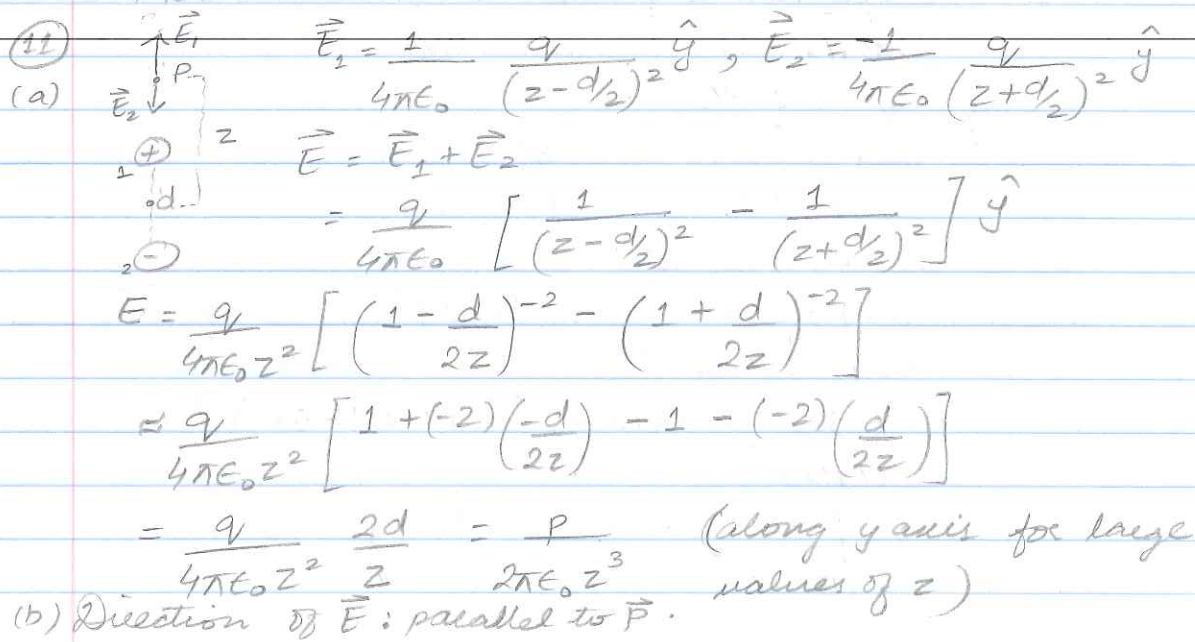 (11) E⃗₁ E⃗₁ = 1/4πϵ₀ q/(z-d/2)² ŷ , E⃗₂ = -1/4πϵ₀ q/(z+d/2)² ŷ
(a) P
E⃗₂
z
1 + E⃗ = E⃗₁ + E⃗₂
d = q/4πϵ₀ [ 1/(z-d/2)² - 1/(z+d/2)² ] ŷ
2 -
E = q/4πϵ₀z² [ (1 - d/2z)⁻² - (1 + d/2z)⁻² ]
≈ q/4πϵ₀z² [ 1 + (-2)(-d/2z) - 1 - (-2)(d/2z) ]
= q/4πϵ₀z² 2d/z = p/2πϵ₀z³ (along y axis for large
values of z)
(b) Direction of E⃗ : parallel to P⃗.